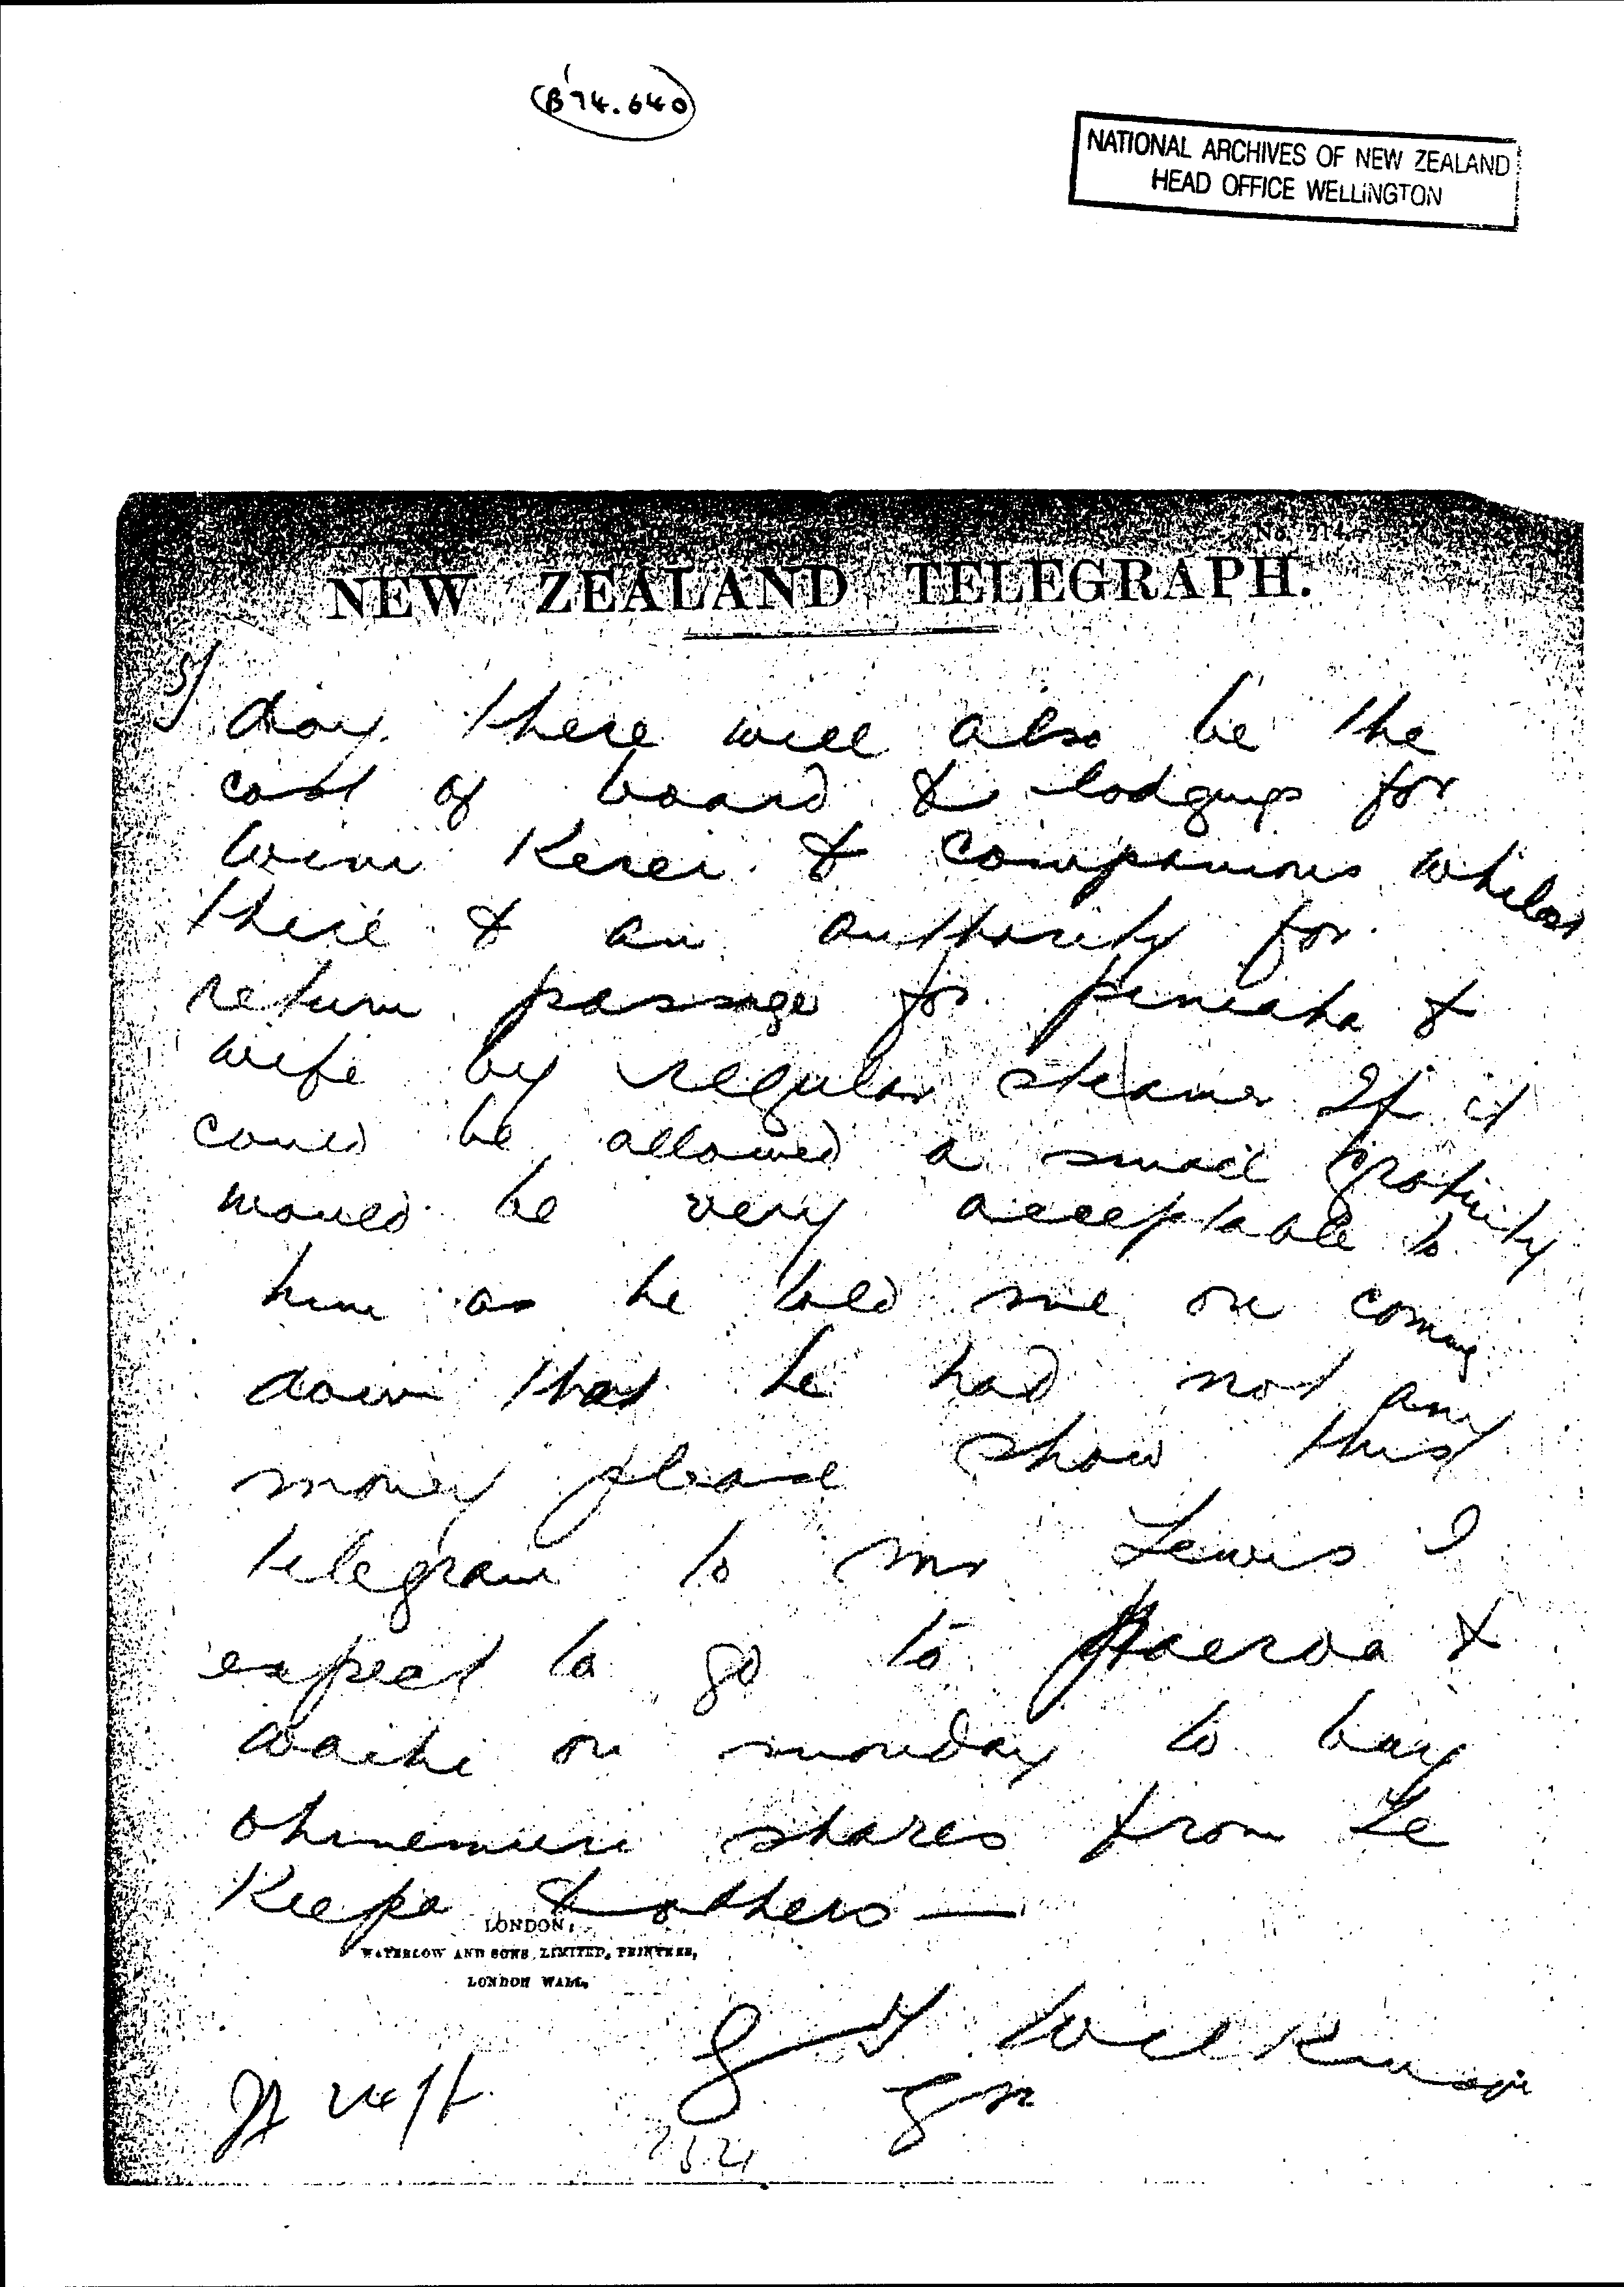 B 74.640
NATIONAL ARCHIVES OF NEW ZEALAND
HEAD OFFICE WELLINGTON
No. 214.
NEW ZEALAND TELEGRAPH.
5/
day. there will also be the
cost of board & lodgings for
Wini Kerei & companions whilst
there & an authority for
return passage for Peneaha &
wife by regular steamer If it
could be allowed a small gratuity
would be very acceptable to
him as he told me on coming
down that he had not any
money please show this
telegram to Mr Lewis I
expect to go to Paeroa &
Waihi on Monday to buy
Ohinemuri shares from Te
Keepa & others —
LONDON,
WATERLOW AND SONS, LIMITED, PRINTERS,
LONDON WALL.
G T Wilkinson